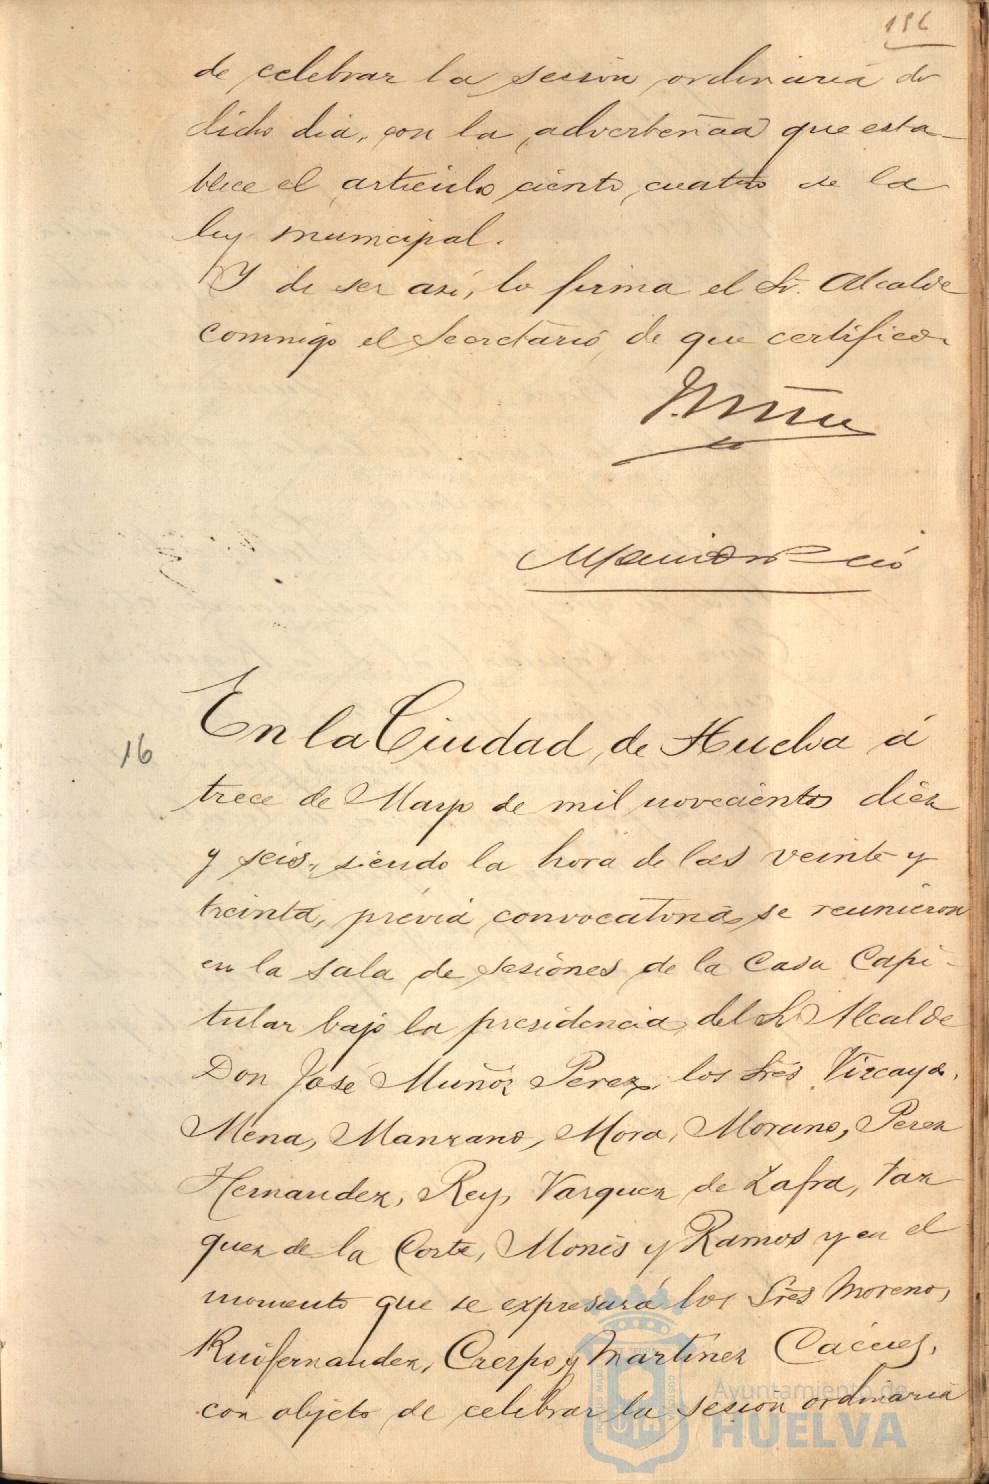 de celebrar la sesión ordinaria de
dicho dia, con la advertencia que esta-
blece el articulo ciento cuatro de la
ley municipal.
Y de ser asi, lo firma el Sr. Alcalde
conmigo el Secretario, de que certifico.
16
En la Ciudad de Huelva á
trece de Mayo de mil novecientos diez
y seis, siendo la hora de las veinte y
treinta, prévia convocatoria, se reunieron
en la sala de sesiones de la Casa Capi-
tular bajo la presidencia del Sr. Alcalde
Don José Muñoz Perez, los Srés Vizcaya,
Mena, Manzano, Mora, Moruno, Perez
Hernandez, Rey, Vazquez de Zafra, Vaz
quez de la Corte, Monis y Ramos y en el
momento que se expresará los Srés Moreno,
Ruifernandez, Crespo y Martinez Cáceres,
con objeto de celebrar la sesión ordinaria
Ayuntamiento de
HUELVA